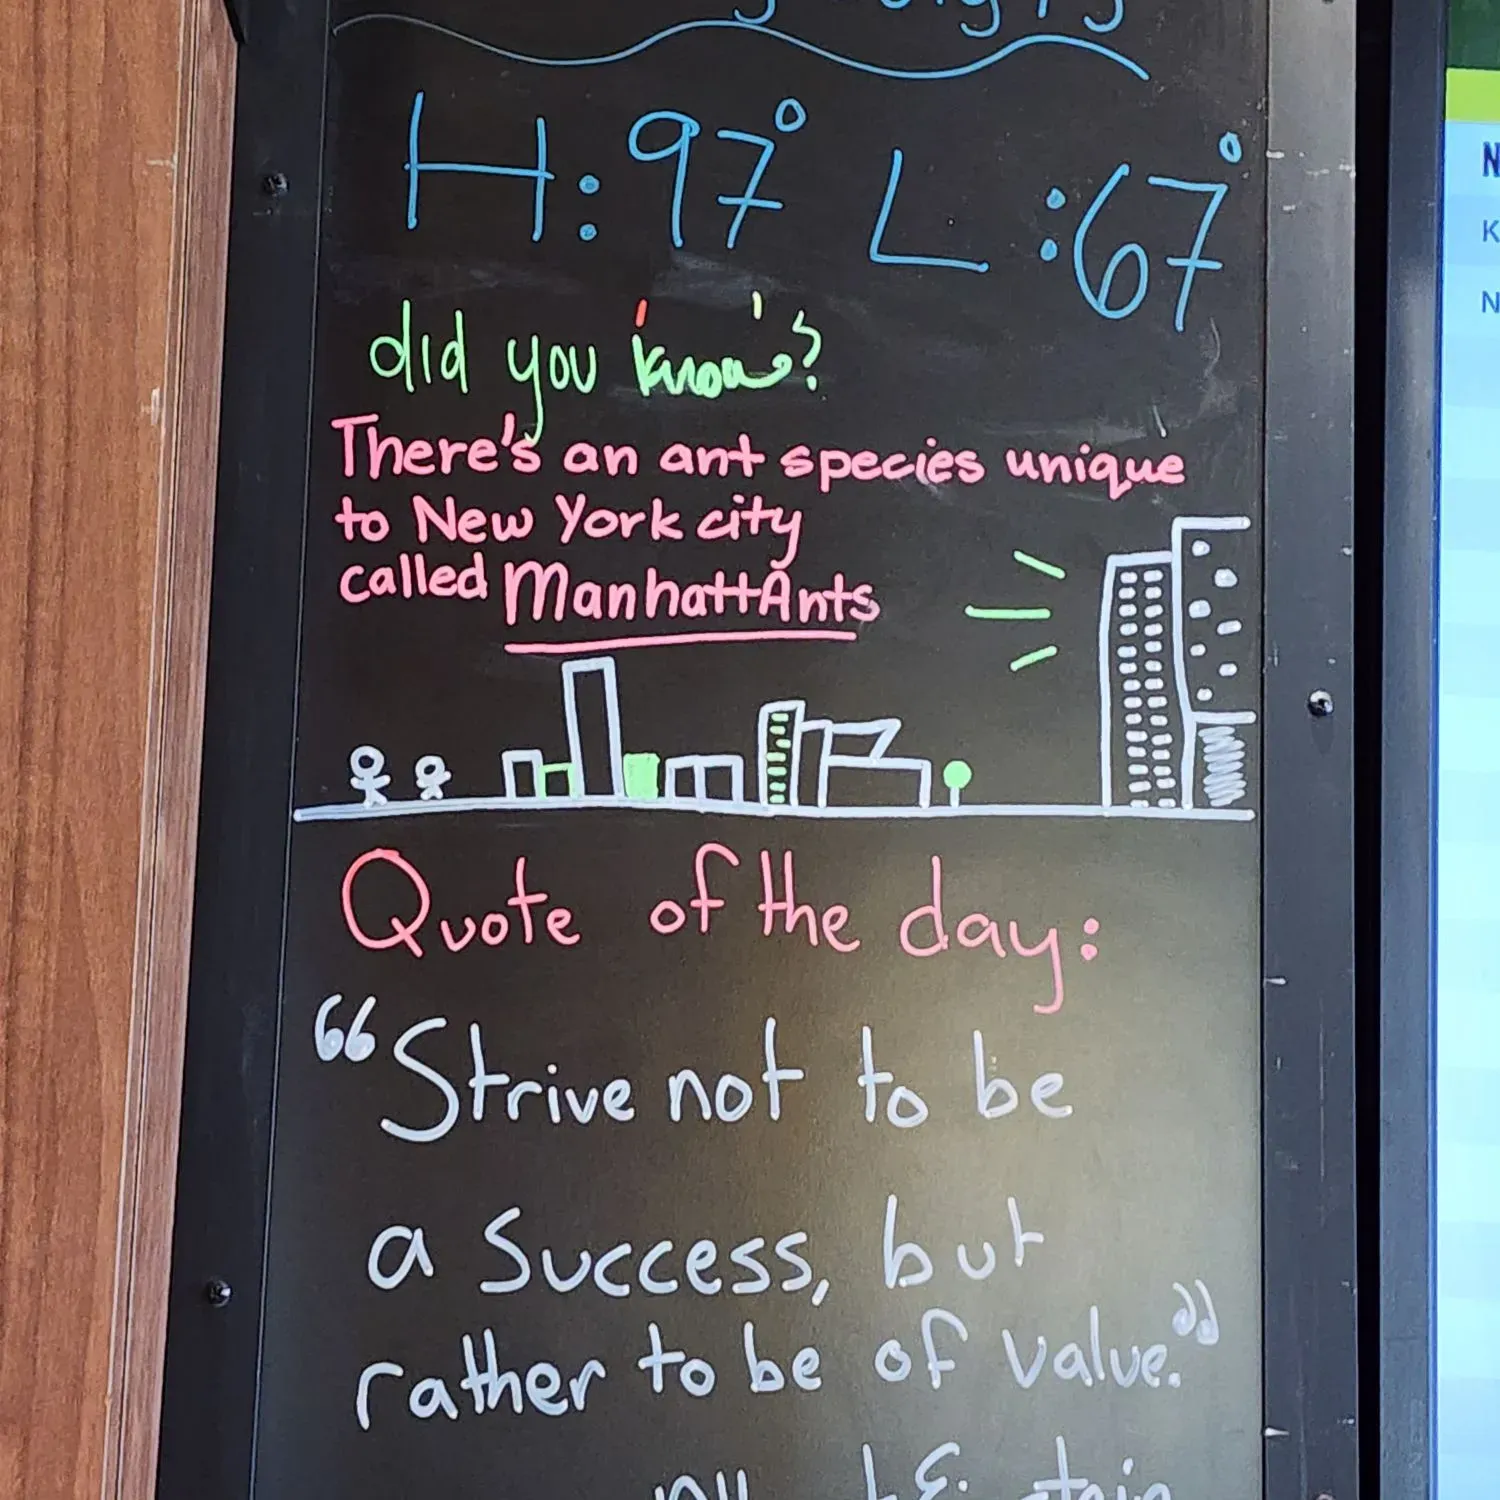 H: 97° L: 67°
did you know?
There's an ant species unique
to New York city
called ManhattAnts
Quote of the day:
“Strive not to be
a success, but
rather to be of value.”